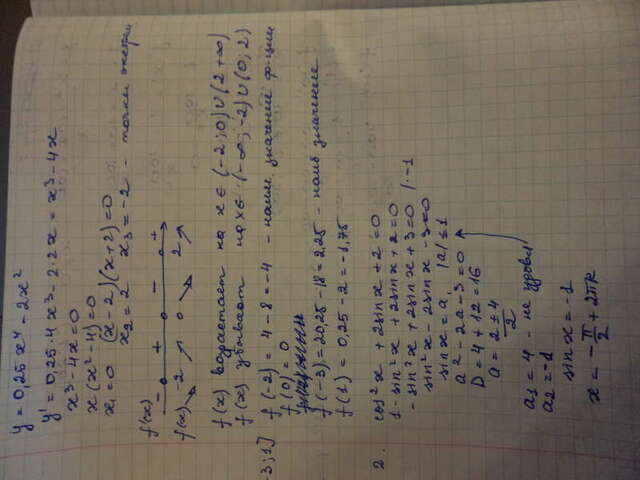 y = 0,25x⁴ - 2x²
y' = 0,25·4x³ - 2·2x = x³ - 4x
x³ - 4x = 0
x(x² - 4) = 0
x₁ = 0 (x - 2)(x + 2) = 0
x₂ = 2 x₃ = -2 - точки экстрем
f'(x) - + - +
f(x) ↘ -2 ↗ 0 ↘ 2 ↗
f(x) возрастает на x ∈ (-2; 0) ∪ (2 +∞)
f(x) убывает на x ∈ (-∞; -2) ∪ (0; 2)
3; 1] f(-2) = 4 - 8 = -4 - наим. значение ф-ции
f(0) = 0
f(-3) = 20,25 - 18 = 2,25 - наиб значение
f(1) = 0,25 - 2 = -1,75
2. cos²x + 2sinx + 2 = 0
1 - sin²x + 2sinx + 2 = 0
- sin²x + 2sinx + 3 = 0 /·-1
sin²x - 2sinx - 3 = 0
sinx = a, |a| ≤ 1
a² - 2a - 3 = 0
D = 4 + 12 = 16
a = 2 ± 4 / 2
a₁ = 4 - не
a₂ = -1
sinx = -1
x = -π/2 + 2πk